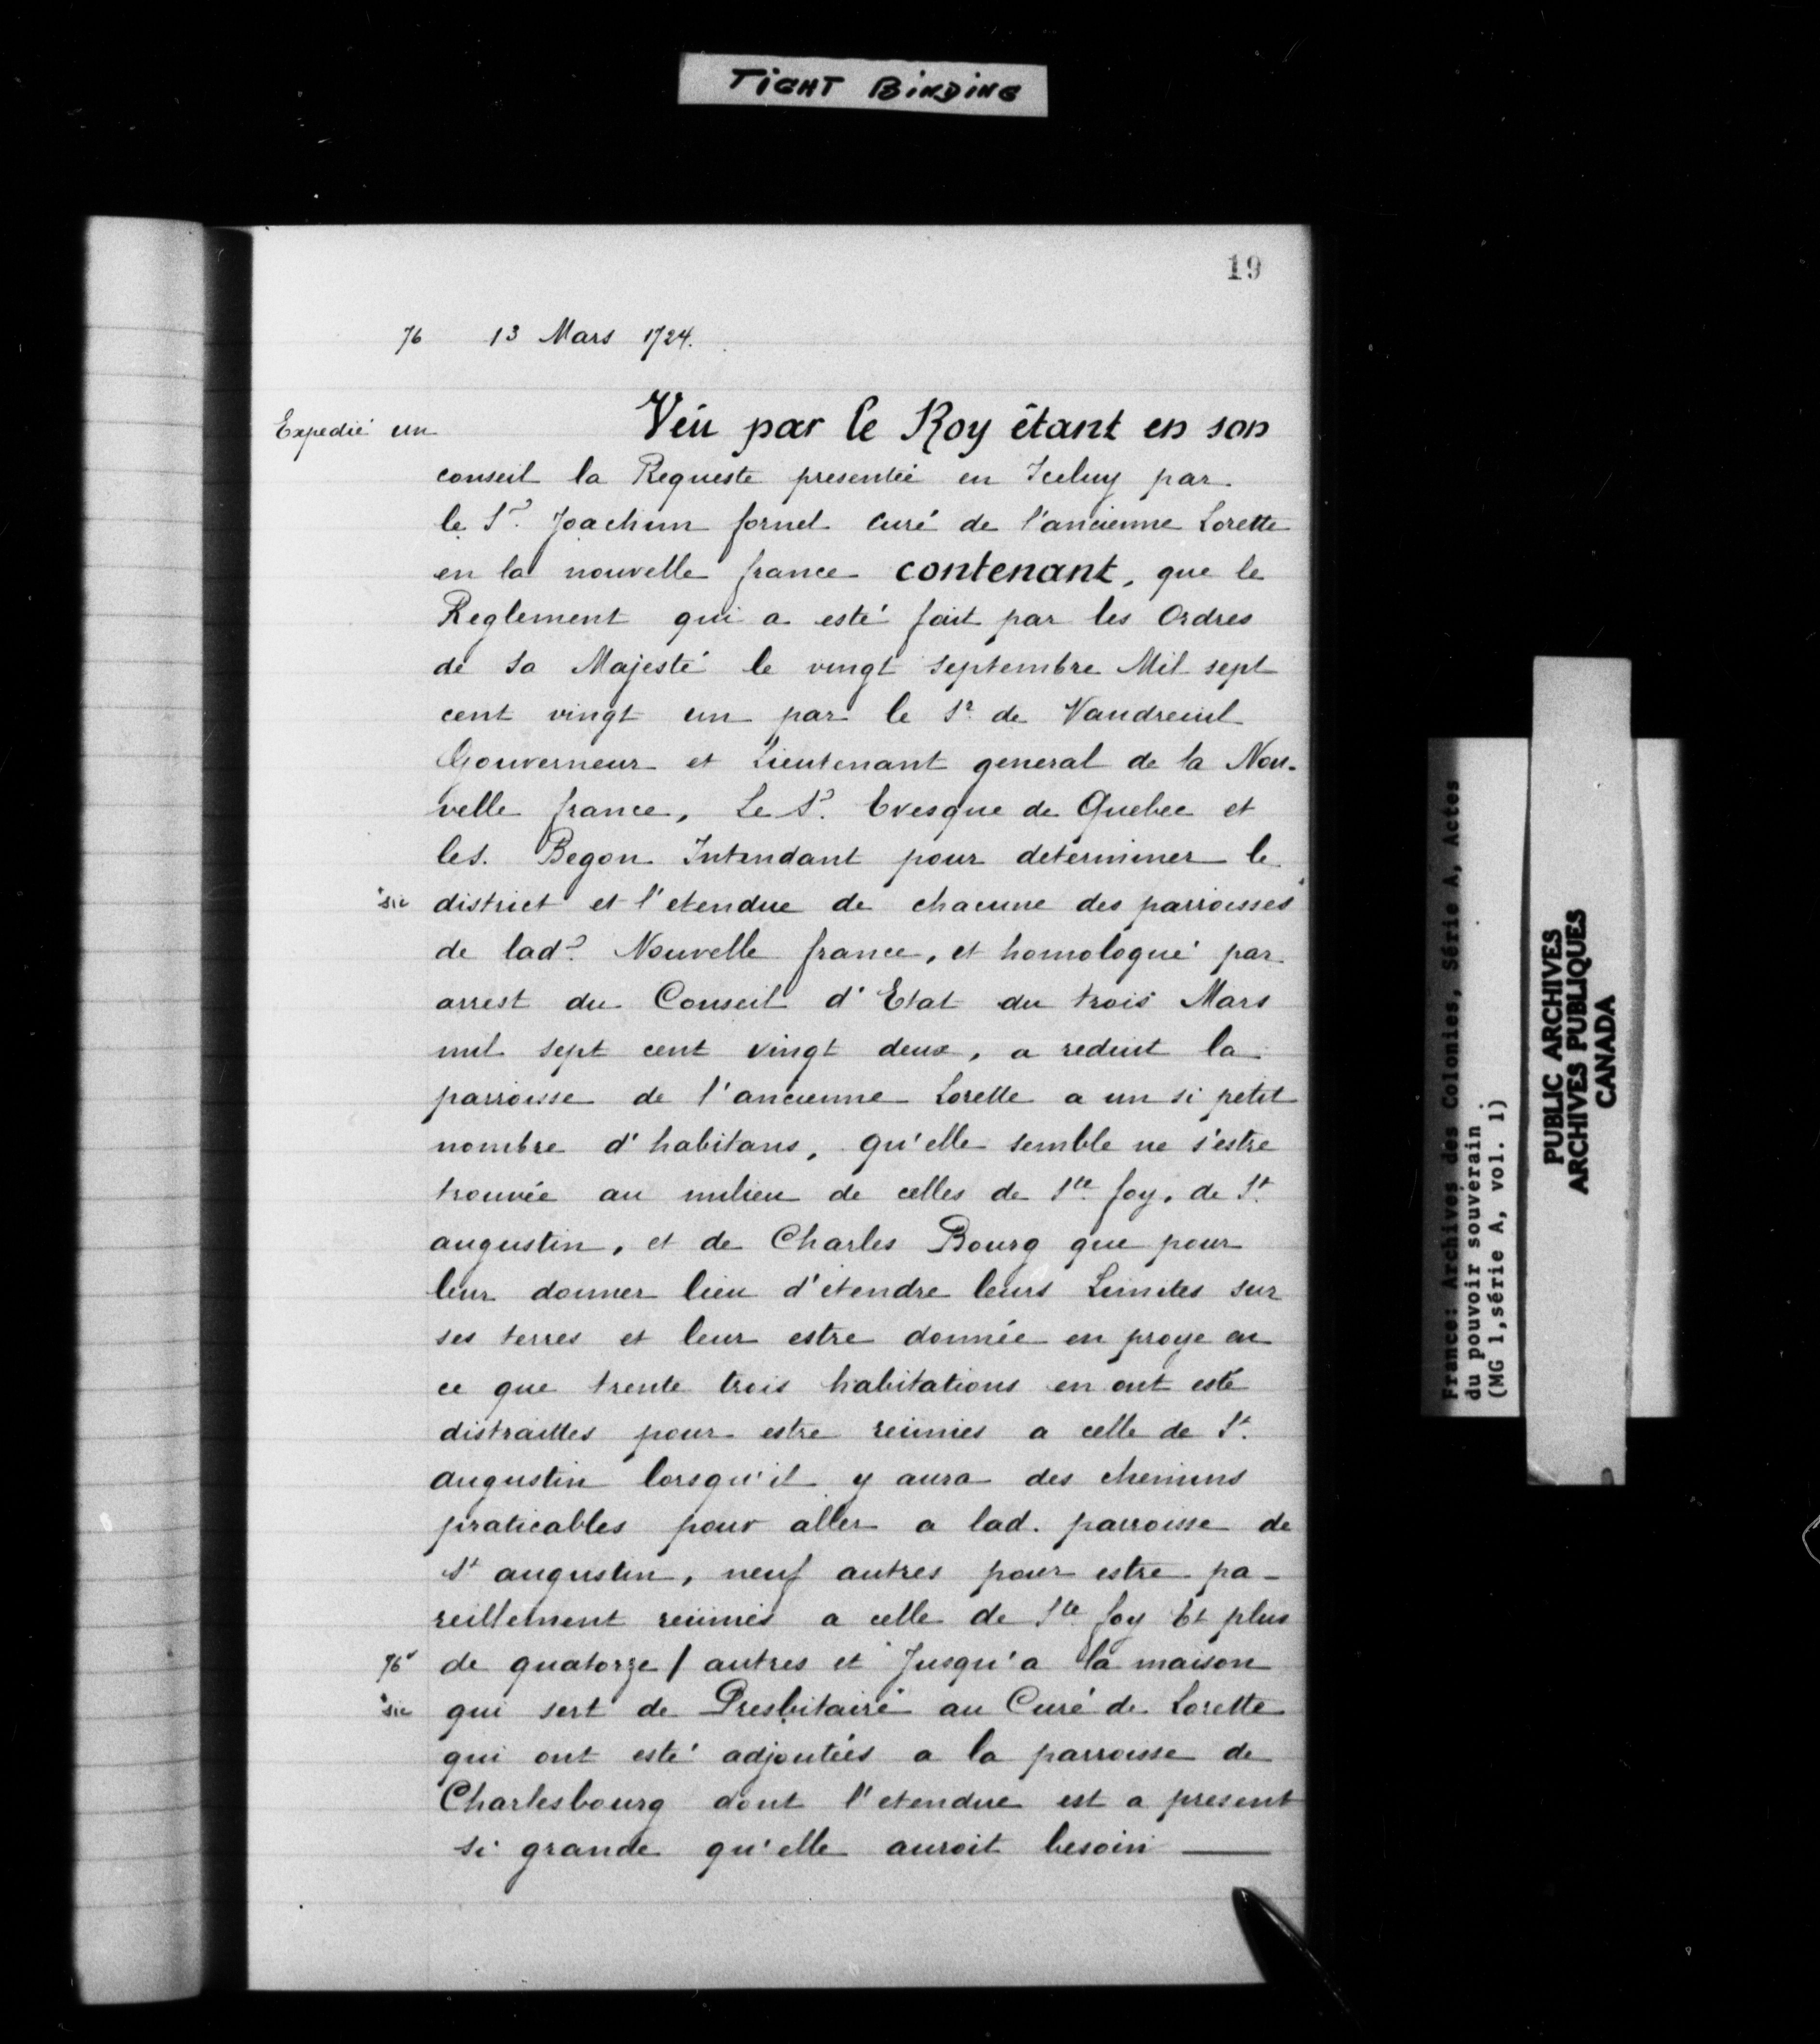 TIGHT BINDING
19
76 13 Mars 1724.
Expedié un Véu par le Roy étant en son
conseil la Requeste presentée en Iceluy par
le Sr. Joachim fornel curé de l'ancienne Lorette
en la nouvelle france contenant, que le
Reglement qui a esté fait par les Ordres
de Sa Majesté le vingt septembre Mil sept
cent vingt un par le Sr de Vaudreuil
Gouverneur et Lieutenant general de la Nou-
velle france, Le Sr. Evesque de Quebec et
le S. Begon Intendant pour determiner le
*sic district et l'etendue de chacune des parroisses*
de lade. Nouvelle france, et homologué par
arrest du Conseil d'Etat du trois Mars
mil sept cent vingt deux, a reduit la
parroisse de l'ancienne Lorette a un si petit
nombre d'habitans, qu'elle semble ne s'estre
trouvée au milieu de celles de Ste foy, de St.
augustin, et de Charles Bourg que pour
leur donner lieu d'étendre leurs Limites sur
ses terres et leur estre donnée en proye en
ce que trente trois habitations en ont esté
distraittes pour estre reünies a celle de St.
augustin lorsqu'il y aura des chemins
praticables pour aller a lad. parroisse de
St augustin, neuf autres pour estre pa-
reillement reünies a celle de Ste foy Et plus
76v de quatorze / autres et Jusqu'a la maison
*sic qui sert de Presbitaire* au Curé de Lorette
qui ont esté adjoutées a la parroisse de
Charlesbourg dont l'etendue est a present
si grande qu'elle auroit besoin —
France: Archives des Colonies, Série A, Actes
du pouvoir souverain.
(MG 1,série A, vol. 1)
PUBLIC ARCHIVES
ARCHIVES PUBLIQUES
CANADA